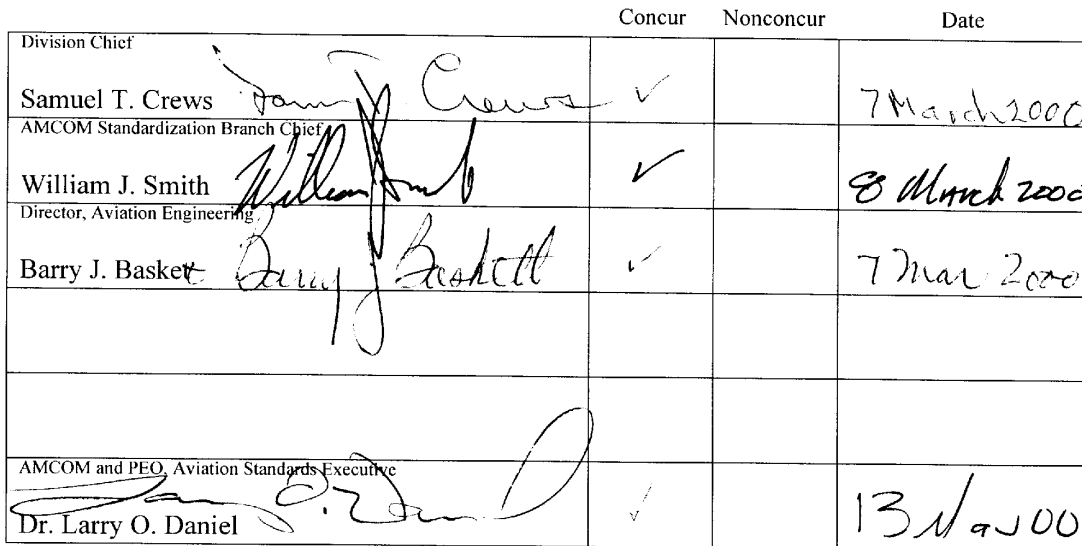 Concur Nonconcur Date
Division Chief
Samuel T. Crews Sam T Crews ✓ 7 March 2000
AMCOM Standardization Branch Chief
William J. Smith William J Smith ✓ 8 March 2000
Director, Aviation Engineering
Barry J. Baskett Barry J Baskett ✓ 7 Mar 2000
AMCOM and PEO, Aviation Standards Executive
Larry O. Daniel
Dr. Larry O. Daniel ✓ 13 Mar 00